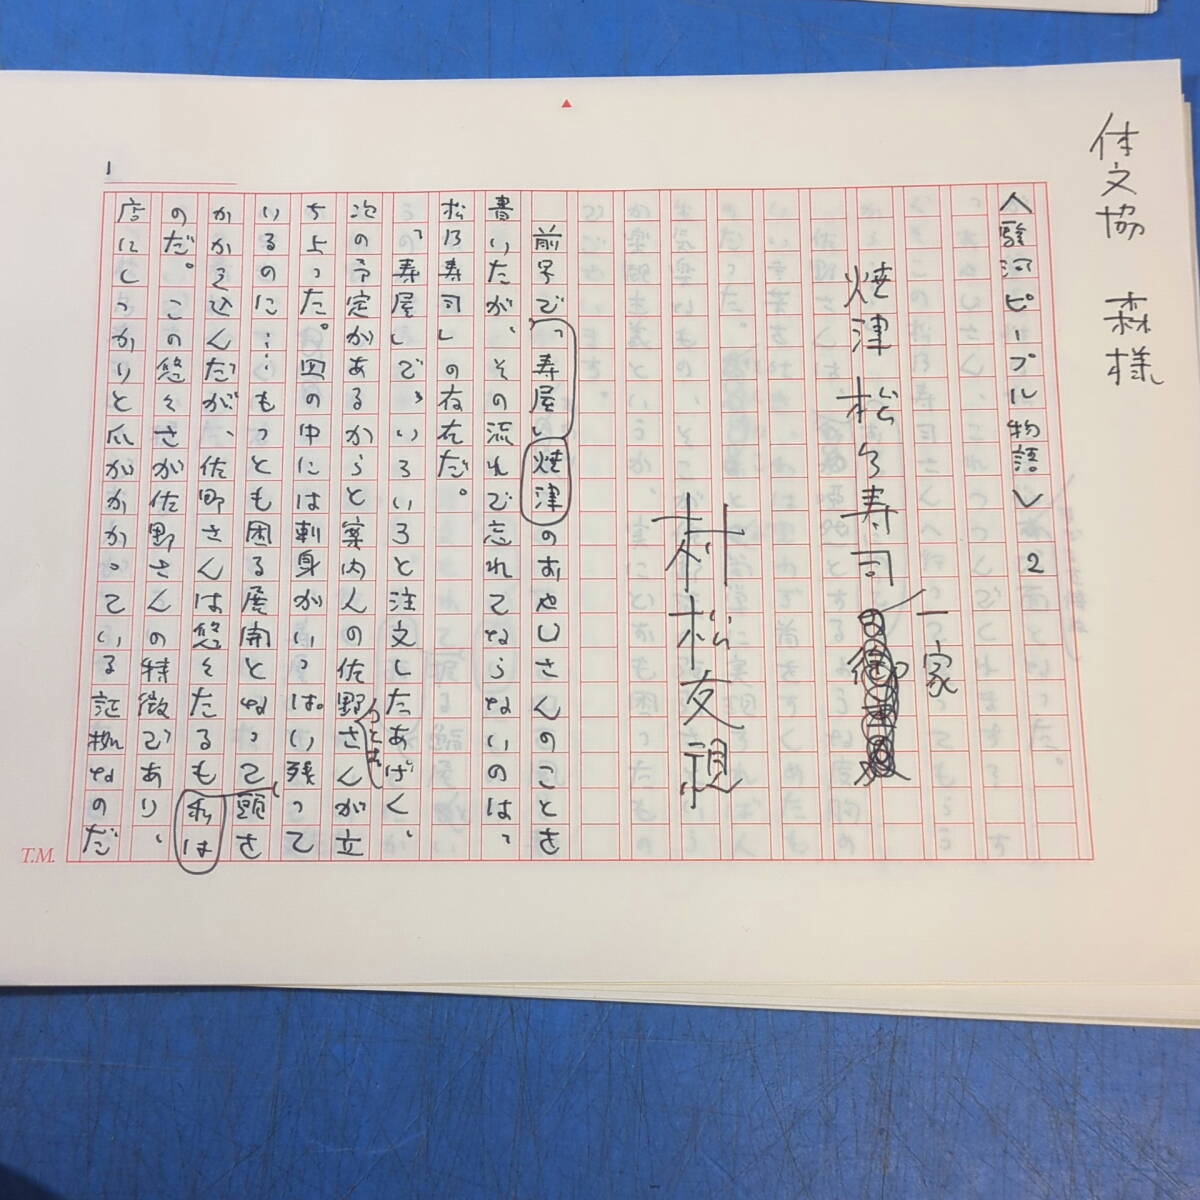 体文協 森様
〈駿河ピープル物語〉2
焼津 松乃寿司一家
村松友視
前号で、「寿屋」焼津のおやじさんのことを
書いたが、その流れで忘れてならないのは、
松乃寿司」の存在だ。
の「寿屋」で、いろいろと注文したあげく、
次の予定があるからと案内人の佐野さんが立
ち上った。皿の中には刺身がいっぱい残って
いるのに…もっとも困る展開となって頭を
かかえ込んだが、佐野さんは悠々たるも私は
のだ。この悠々さが佐野さんの特徴であり、
店にしっかりと爪がかかっている証拠なのだ
1
T.M.